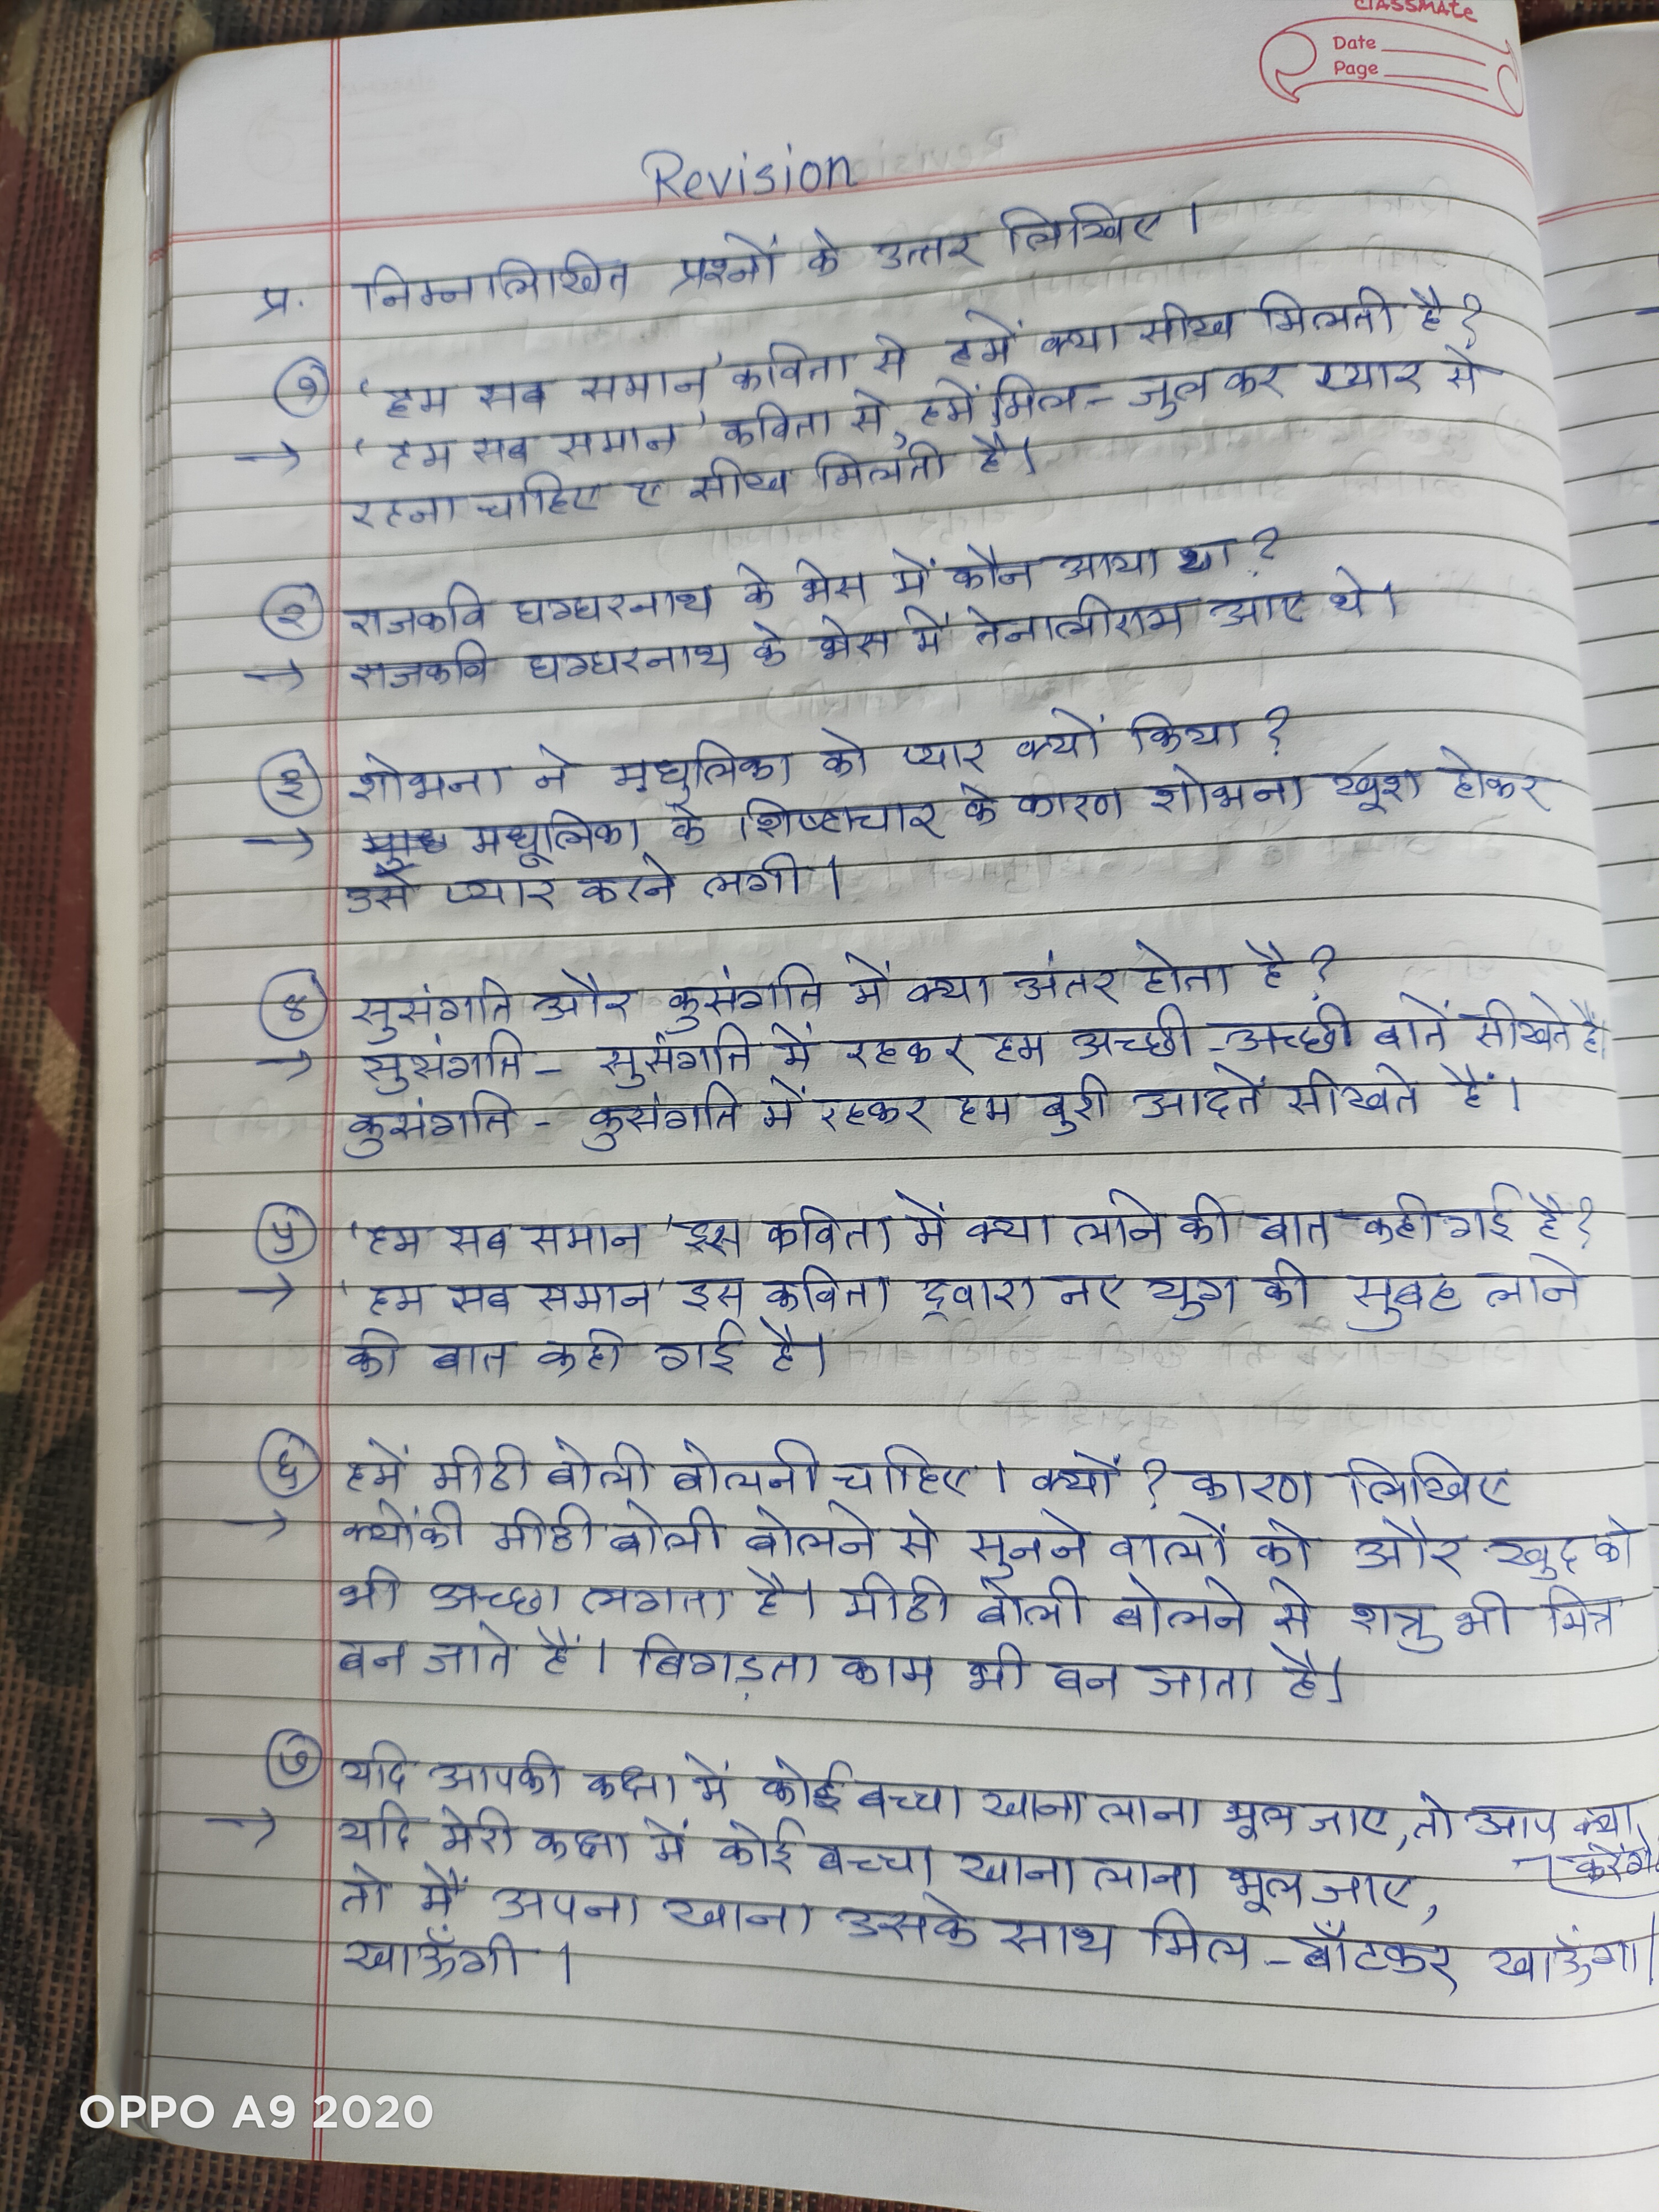 classmate
Date
Page
Revision
प्र. निम्नलिखित प्रश्नों के उत्तर लिखिए।
१ 'हम सब समान' कविता से हमें क्या सीख मिलती है?
→ 'हम सब समान' कविता से, हमें मिल-जुलकर प्यार से
रहना चाहिए ए सीख मिलती है।
२ राजकवि घग्घरनाथ के भेस में कौन आया था?
→ राजकवि घग्घरनाथ के भेस में तेनालीराम आए थे।
३ शोभना ने मधुलिका को प्यार क्यों किया?
→ मधूलिका के शिष्टाचार के कारण शोभना खूश होकर
उसे प्यार करने लगी।
४ सुसंगति और कुसंगति में क्या अंतर होता है?
→ सुसंगति - सुसंगति में रहकर हम अच्छी-अच्छी बातें सीखते है।
कुसंगति - कुसंगति में रहकर हम बुरी आदतें सीखते हैं।
५ 'हम सब समान' इस कविता में क्या लाने की बात कही गई है?
→ 'हम सब समान' इस कविता द्वारा नए युग की सुबह लाने
की बात कही गई है।
६ हमें मीठी बोली बोलनी चाहिए। क्यों? कारण लिखिए
→ क्योंकी मीठी बोली बोलने से सुनने वालों को और खुद को
भी अच्छा लगता है। मीठी बोली बोलने से शत्रु भी मित्र
बन जाते हैं। बिगड़ता काम भी बन जाता है।
७ यदि आपकी कक्षा में कोई बच्चा खाना लाना भूल जाए, तो आप क्या
करेंगे
→ यदि मेरी कक्षा में कोई बच्चा खाना लाना भूल जाए,
तो मैं अपना खाना उसके साथ मिल-बाँटकर खाऊँगा।
खाऊँगी।
OPPO A9 2020